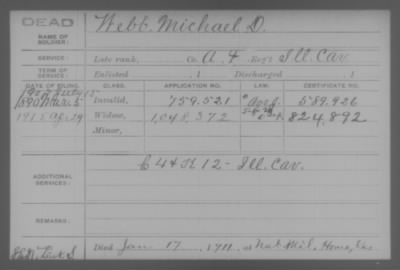 DEAD
Webb, Michael D.
NAME OF SOLDIER:
SERVICE: Late rank, Co. A. & F. Reg't Ill. Cav.
TERM OF SERVICE: Enlisted , 1 Discharged , 1
DATE OF FILING. CLASS. APPLICATION NO. LAW. CERTIFICATE NO.
1890 Mar 5 Invalid, 759.521 589.926
1911 Widow, 1,048,372 824,892
Minor,
ADDITIONAL SERVICES: C 4 & 12 - Ill. Cav.
REMARKS:
Died Jan 17, 1911, at Nat. Mil. Home,